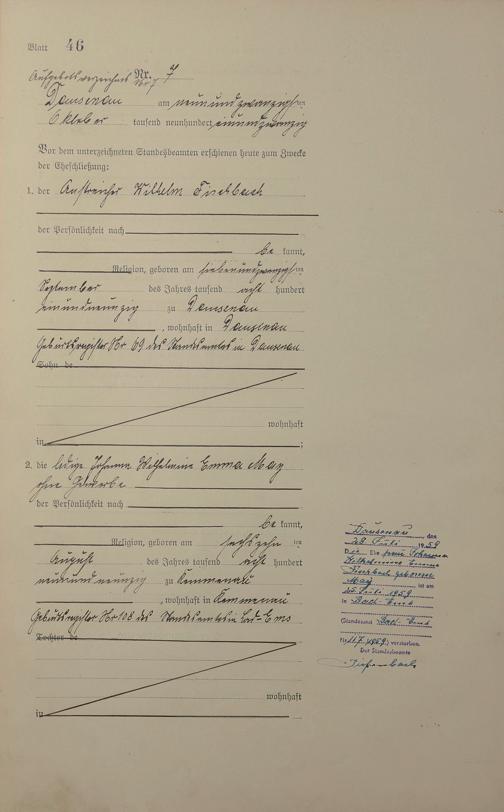 Blatt 46
Aufgebotsverzeichnis Nr. 7
Nr. 7
Dausenau am neunundzwanzigsten
Oktober tausend neunhundert einundzwanzig
Vor dem unterzeichneten Standesbeamten erschienen heute zum Zwecke
der Eheschließung:
1. der Anstreicher Wilhelm Fischbach
der Persönlichkeit nach
be kannt,
Religion, geboren am siebenundzwanzigsten
September des Jahres tausend acht hundert
einundneunzig zu Dausenau
, wohnhaft in Dausenau
Geburtsregister Nr 69 des Standesamtes in Dausenau
Sohn de
wohnhaft
in ;
2. die ledige Johanna Wilhelmine Emma May
ohne Gewerbe
der Persönlichkeit nach
be kannt,
Religion, geboren am sechszehn ten
August des Jahres tausend acht hundert
neunundneunzig zu Kemmenau
, wohnhaft in Kemmenau
Geburtsregister Nr 108 des Standesamtes in Bad-Ems
Tochter de
wohnhaft
in
Dausenau, den
28. Juli 1959
Die Ehefrau Johanna
Wilhelmine Emma
Fischbach geborene
May ist am
25. Juli 1959
in Bad-Ems
(Standesamt Bad-Ems
Nr. 117/1959) verstorben.
Der Standesbeamte